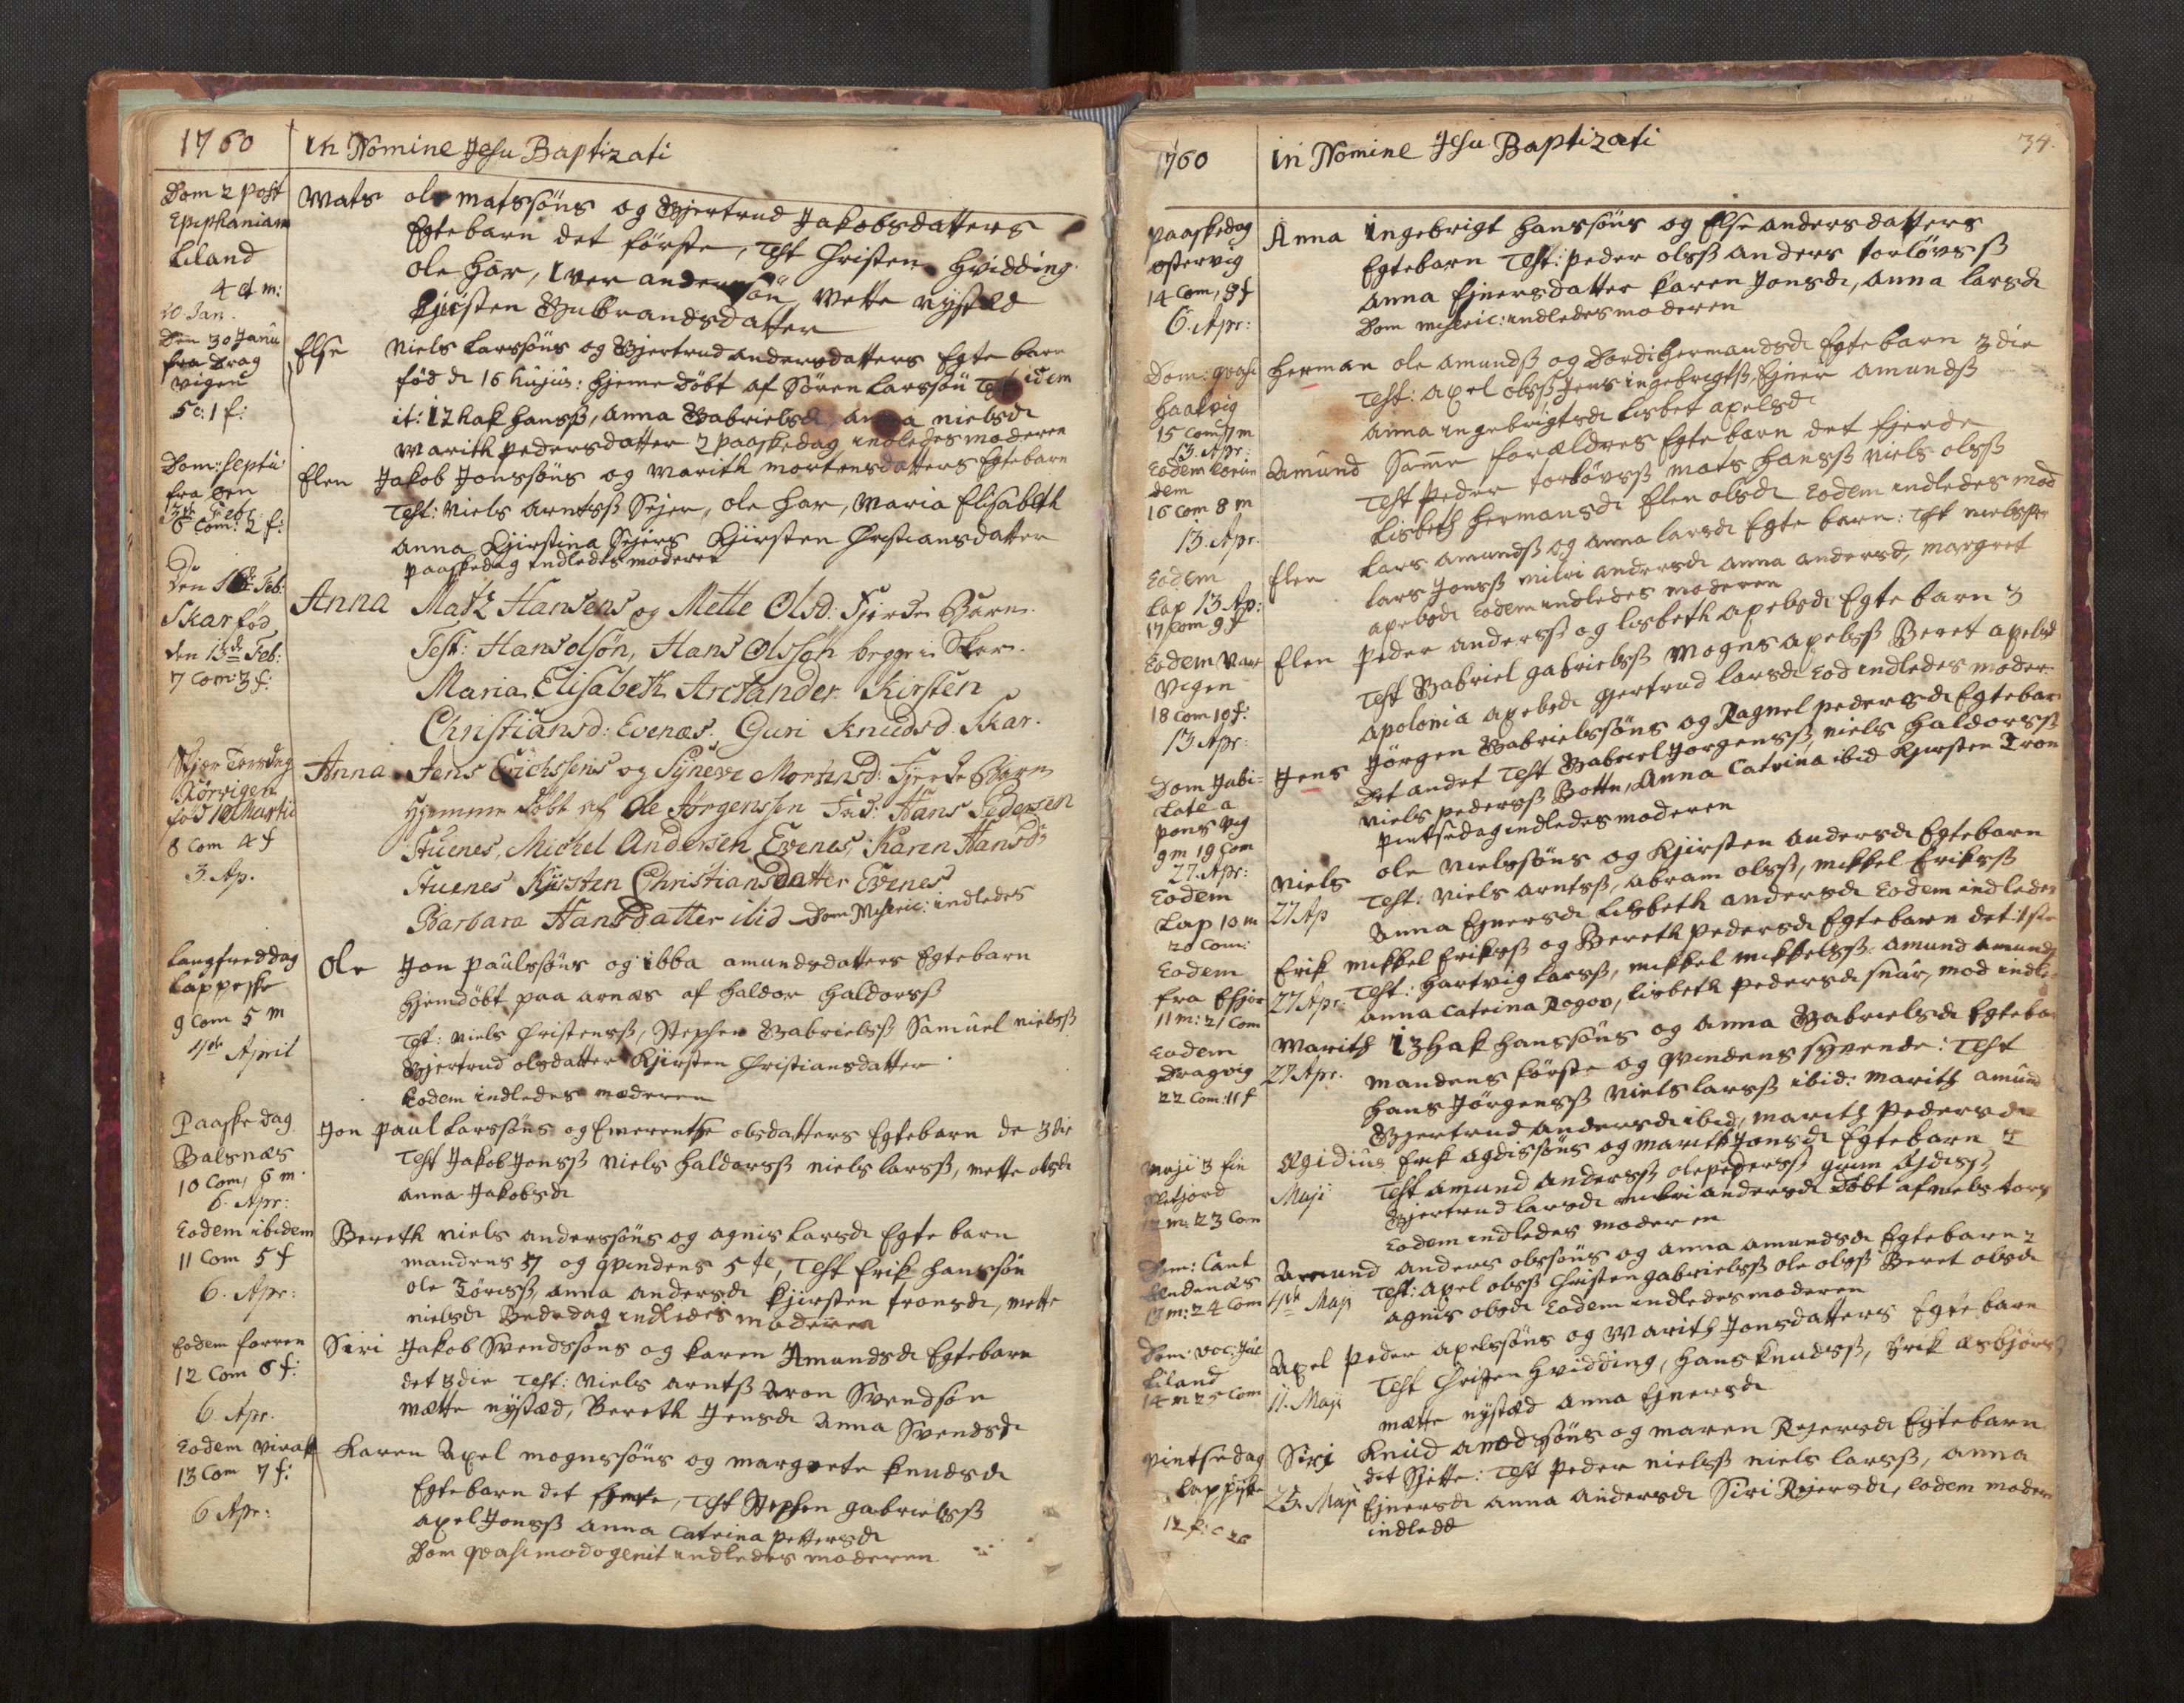 1760
In Nomine Jesu Baptizati
Dom 2 post
Epiphaniam
Liland
4 et m:
20 Jan.
Mats ole Matssöns og Gjertrud Jakobsdatters
Egtebarn det förste, Test Christen Hvidding
ole Har, Iver andersön, Mette Nystæd
Kjirsten Gulbrandsdatter
Den 30 Janu
fra Drag
vigen
5 c: 1 f:
Else Niels Larssöns og Gjertrud andersdatters Egte barn
föd d 16 hujus: hjeme döbt af Sören Larssön Test idem
it: Izhak Hansß, Anna Gabrielsd, anna nielsd
Marith Pedersdatter 2 Paaskedag indledes moderen
Dom: septu
fra Öen
3de Feb:
6 Com: 2 f:
Elen Jakob Jonssöns og Marith Mortensdatters Egtebarn
Test: Niels Arntsß Sejer, ole Har, Maria Elisabeth
Anna Kjirstina Sejers Kjirsten Christiansdatter
Paaskedag indledes moderen
Den 16de Feb:
Skar föd
den 13de Feb:
7 Com: 3 f:
Anna Matz Hansens og Mette Olsd. Fjerde Barn.
Test: Hans olsön, Hans Olssön begge i Skar.
Maria Elisabeth Arctander. Kirsten
Christiansd: Evenæs. Guri Knudsd. Skar.
Skjær Torsdag
Körvigen
föd 10 Martii
8 Com 4 f
3. Ap.
Anna Jens Erichsens og Synevi Mortensd: Fjerde Barn
Hjemme döbt af Ole Jörgenssen Fad: Hans Pedersen
Stuenes, Michel Andersen Evenes, Karen Hansd:
Stuenes Kjirsten Christiansdatter Evenes
Barbara Hansdatter ibid Dom Miseric: indledes
Langfreddag
Lappeske
9 Com 5 m
4de April
Ole Jon Paulssöns og ibba amundsdatters Egtebarn
Hjemdöbt paa Arnæs af Haldor Haldorsß
Test: Niels Christensß, Stephen Gabrielsß Samuel Nielsß
Gjertrud olsdatter Kjirsten Christiansdatter
Eodem indledes moderen
Paaske dag
Balsnæs
10 Com, 6 m
6. Apr:
Jon Paul Larssöns og Emerentse olsdatters Egtebarn de 3die
Test Jakob Jonsß Niels Haldorsß Niels larsß, Mette olsd
Anna Jakobsd
Eodem ibidem
11 Com 5 f
6. Apr:
Bereth Niels anderssöns og Agnis Larsd Egte barn
mandens 7 og qvindens 5te, Test Erik Hanssön
ole Törisß, Anna Andersd Kjirsten Tronsd, Mette
nielsd Bededag indledes moderen
Eodem forren
12 Com 6 f:
6. Apr.
Siri Jakob Svendssöns og Karen Amundsd Egtebarn
det 3die Test: Niels Arntß Aron Svendsön
Mætte Nystæd, Bereth Jensd Anna Svendsd
Eodem Virak
13 Com 7 f:
6 Apr:
Karen Axel Mognssöns og Margrete Knudsd
Egtebarn det fjerde, Test Stephen Gabrielsß
Axel Jonsß Anna Catrina Pettersd
Dom Qvasimodogenit indledes moderen
1760
In Nomine Jesu Baptizati
34.
Paaskedag
Östervig
14 Com, 8 f
6. Apr:
Anna Ingebrigt Hanssöns og Else Andersdatters
Egtebarn Test: Peder olsß Anders Torlövsß
Anna Ejnersdatter Karen Jonsd, Anna Larsd
Dom miseric: indledes moderen
Dom: qvasi
Haakvig
15 Com 7 m
13. Apr:
Herman ole Amundsß og Dordi Hermandsd Egtebarn 3die
Test: Axel olsß Jens ingebrigtsß, Ejner Amundsß
Anna ingebrigtsd Lisbet Axelsd
Eodem
dem
16 Com 8 m
13. Apr.
Amund Samme forældres Egtebarn det fjerde
Test Peder Torlövsß Mats Hansß Niels olsß
Lisbeth Hermansd Elen olsd Eodem indledes mod
Eodem
Lap 13 Ap:
17 Com 9 f
Elen Lars Amundsß og Anna Larsd Egte barn: Test
Lars Jonsß Milri Andersd Anna Andersd, Margret
Axelsd Eodem indledes moderen
Eodem
vigen
18 Com 10 f:
13 Apr:
Elen Peder Andersß og Lisbeth Axelsd Egtebarn 3
Test Gabriel Gabrielsß Mogns Axelsß Beret Axelsd
Apolonia Axelsd Gjertrud Larsd Eod indledes moder
Dom Jubi-
late a
pons vig
9 m 19 Com
27. Apr:
Jens Jörgen Gabrielssöns og Ragnel Pedersd Egtebar
det andet Test Gabriel Jörgensß, Niels Haldorsß
Niels Pedersß Bottn, Anna Catrina ibid Kjirsten Tron
Pintsedag indledes moderen
Eodem
Lap 10 m
20 Com:
Niels ole Nielssöns og Kjirsten Andersd Egtebarn
27 Ap Test: Niels Arntsß, Abram olsß, Mikkel Eriksß
Anna Ejnersd Lisbeth Andersd Eodem indledes
Eodem
fra Efjor
11 m: 21 Com
Erik Mikkel Eriksß og Bereth Pedersd Egtebarn det 1ste
27 Apr: Test: Hartvig Larsß, Mikkel Mikkelsß Amund Amunds
Anna Catrina Rogov, Lisbeth Pedersd Snar, mod indle
Eodem
Dragvig
22 Com: 11 f
Marith Izhak Hanssöns og Anna Gabrielsd Egteba
27 Apr. Mandens förste og qvindens syvende: Test
Hans Jörgensß Niels Larsß ibid. Marith Amund
Gjertrud Andersd ibid, Marith Pedersd
Maji 3
12 m: 23 Com
Ægidius Erik Ægdissöns og Marith Jonsd Egtebarn
Maji Test Amund Andersß ole Pedersß
Gjertrud Larsd Milri Andersd döbt af Niels
Eodem indledes moderen
Dom: Cant
Lendenæs
13 m: 24 Com
Amund Anders olssöns og Anna Amundsd Egtebarn 2
4de Maji Test: Axel olsß Christen Gabrielsß ole olsß Beret olsd
Agnis olsd Eodem indledes moderen
Dom: voc: Juc
Liland
14 m 25 Com
Axel Peder Axelssöns og Marith Jonsdatters Egtebarn
11. Maji Test Christen Hvidding, Hans Knudsß, Erik Asbjörs
Mætte Nystæd Anna Ejnersd
Pintsedag
Lappeske
12 f: c 26
Siri Knud Amodssöns og Maren Rejersd Egtebarn
det Sjette: Test Peder Nielsß Niels Larsß, Anna
25. Maji Ejnersd Anna Andersd Siri Rejersd, Eodem moder
indledd